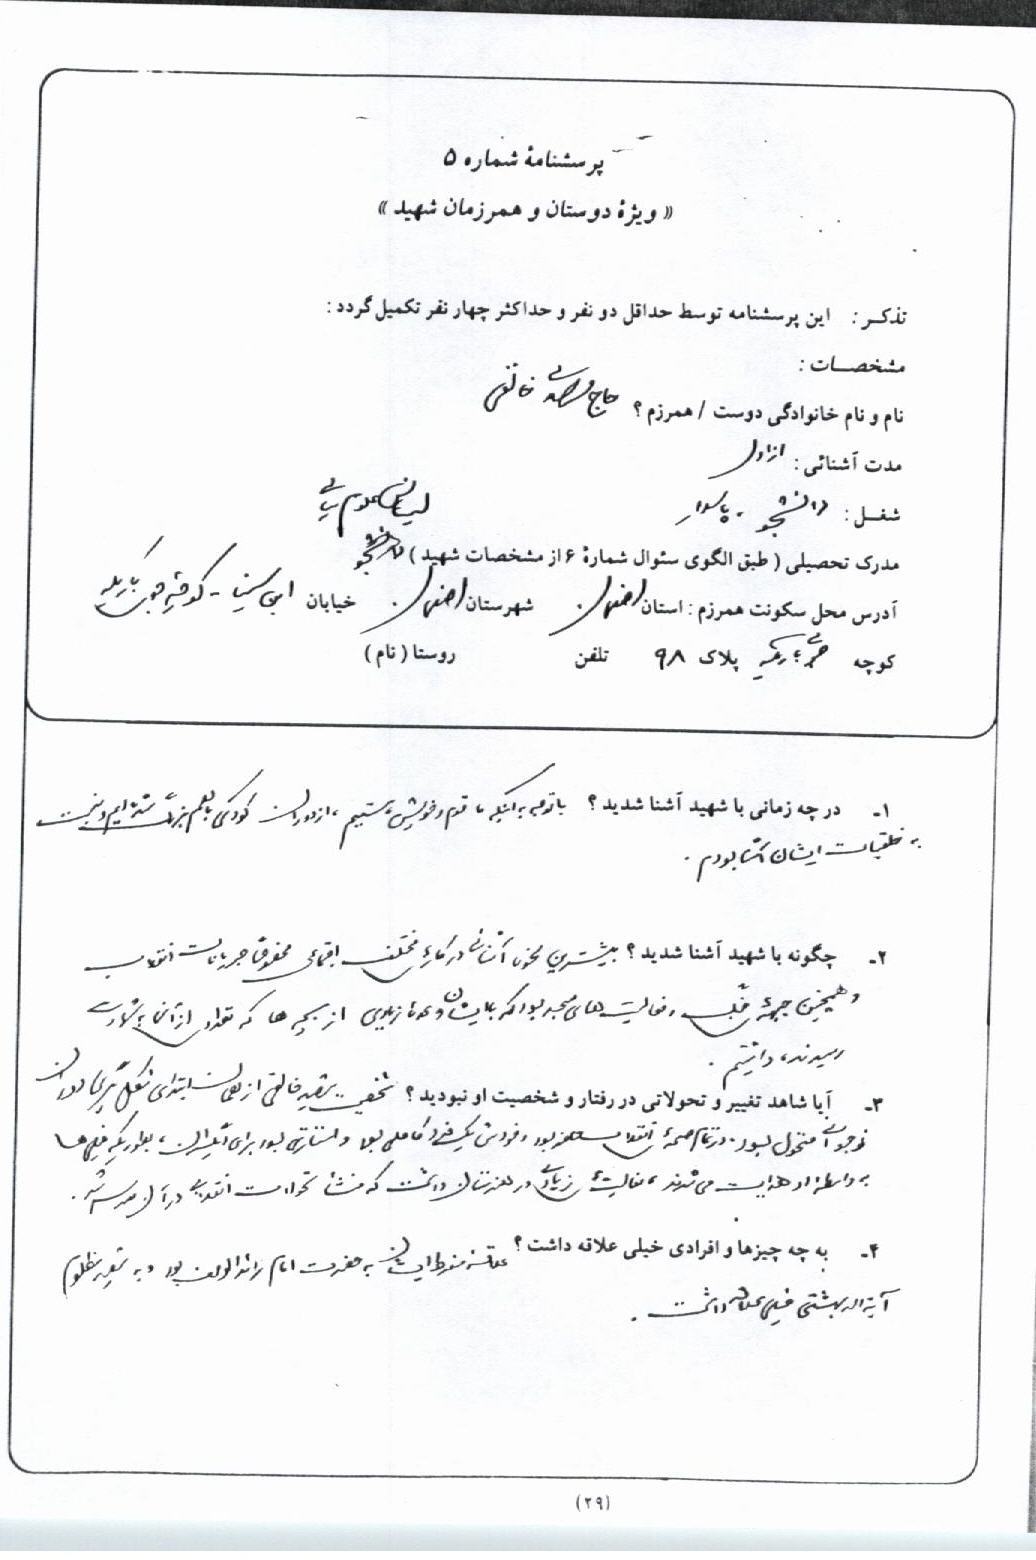 پرسشنامهٔ شماره ۵
« ویژهٔ دوستان و همرزمان شهید »
تذکـر : این پرسشنامه توسط حداقل دو نفر و حداکثر چهار نفر تکمیل گردد :
مشخصـات :
نام و نام خانوادگی دوست / همرزم ؟ حاج خالقی
مدت آشنائی : از اول
شغـل : دانشجو - پاسدار
مدرک تحصیلی ( طبق الگوی سئوال شمارهٔ ۶ از مشخصات شهید ) دانشجو لیسانس علوم سیاسی
آدرس محل سکونت همرزم : استان اصفهان شهرستان اصفهان خیابان ابن سینا - کوچه
کوچه پلاک ۹۸ تلفن روستا ( نام )
۱ـ در چه زمانی با شهید آشنا شدید ؟ با توجه به اینکه ما قوم و خویش هستیم ، از دوران کودکی با هم بزرگ شده ایم و نسبت
به خلقیات ایشان آشنا بودم .
۲ـ چگونه با شهید آشنا شدید ؟ بیشترین نحوه آشنائی در کارهای مختلف اجتماعی مخصوصاً جریانات انقلاب
و همچنین جبهه جنگ و فعالیت های مسجد بود که با ایشان و عده زیادی از بچه ها که تعدادی از آنها به شهادت
رسیدند ، داشتیم .
۳ـ آیا شاهد تغییر و تحولاتی در رفتار و شخصیت او نبودید ؟ شخصیت شهید خالقی از همان ابتدای شکل گیری دوران
نوجوانی متحول بود . در تمام صحنه های انقلاب حاضر بود و خودش یک فرد کاملی بود و استارتی بود برای دیگران ، بطوریکه خیلی ها
به واسطه او هدایت می شدند ، فعالیت های زیادی در هنرستان داشت که منشأ تحولات انقلابی در آن مدرسه شد .
۴ـ به چه چیزها و افرادی خیلی علاقه داشت ؟ علاقه مفرط ایشان به حضرت امام زائدالوصف بود و به شهید مظلوم
آیة الله بهشتی خیلی علاقه داشت .
(۲۹)